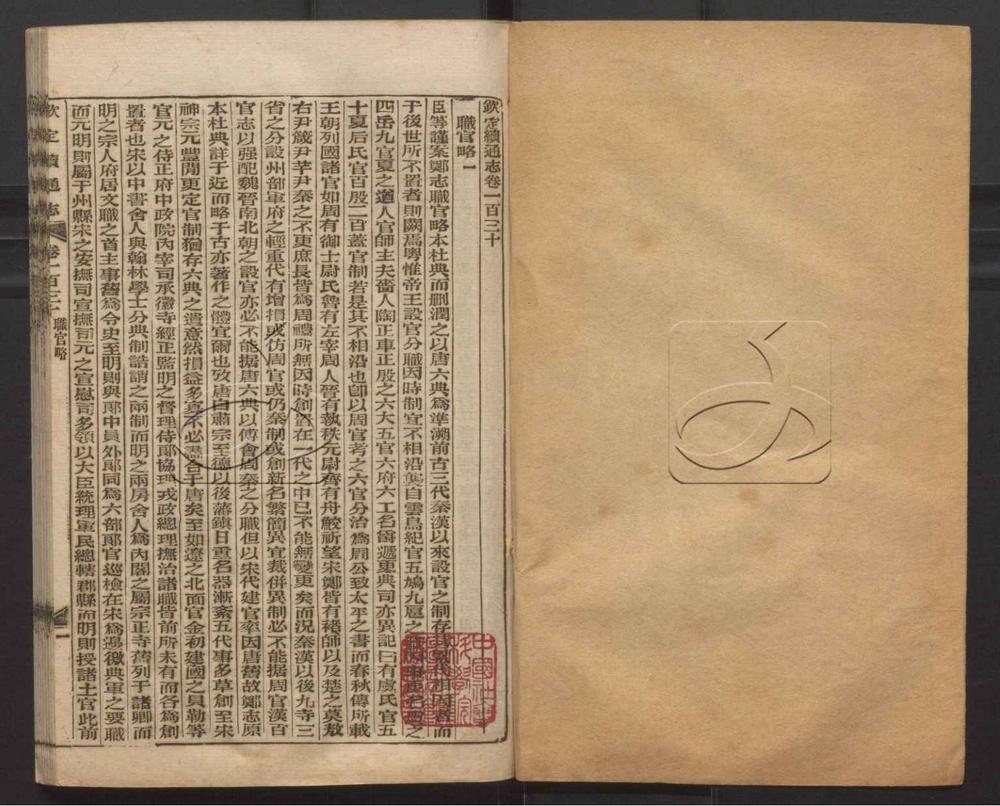 欽定續通志卷一百三十
職官略一
臣等謹案鄭志職官略本杜典而刪潤之以唐六典為準溯前古三代秦漢以來設官之制存其
于後世所不置者則闕焉粵惟帝王設官分職因時制宜不相沿襲自雲鳥紀官五鳩九扈之
四岳九官夏之遒人官師主夫嗇人陶正車正殷之六大五官六府六工名號遞更典司亦異記曰有虞氏官五
十夏后氏官百殷二百蓋官制若是其不相沿也卽以周官考之六官分治為周公致太平之書而春秋傳所載
王朝列國諸官如周有御士尉氏魯有左宰周人晉有執秩元尉齊有舟鮫祈望宋鄭皆有褚師以及楚之莫敖
右尹箴尹芋尹秦之不更庶長皆為周禮所無因時創置在一代之中已不能無變更矣而況秦漢以後九寺三
省之分設州部軍府之輕重代有增損或仿周官或仍秦制或創新名繁簡異宜裁併異制必不能据周官漢百
官志以强配魏晉南北朝之設官亦必不能据唐六典以傅會周秦之分職但以宋代建官率因唐舊故鄭志原
本杜典詳于近而略于古亦著作之體宜爾也攷唐自肅宗至德以後藩鎮日重名器漸紊五代事多草創至宋
神宗元豐閒更定官制猶存六典之遺意然損益多寡不必盡合于唐矣至如遼之北面官金初建國之貝勒等
官元之侍正府中政院內宰司承徽寺經正監明之督理侍郞協理戎政總理撫治諸職皆前所未有而各為創
置者也宋以中書舍人與翰林學士分典制誥謂之兩制而明之兩房舍人為內閣之屬宗正寺舊列于諸卿而
明之宗人府居文職之首主事舊為令史至明則與郞中員外郞同為六部郞官巡檢在宋為邊徼典軍之要職
而元明則屬于州縣宋之安撫司宣撫司元之宣慰司多領以大臣統理軍民總轄郡縣而明則授諸土官此前
欽定續通志 卷一百三十 職官略 一